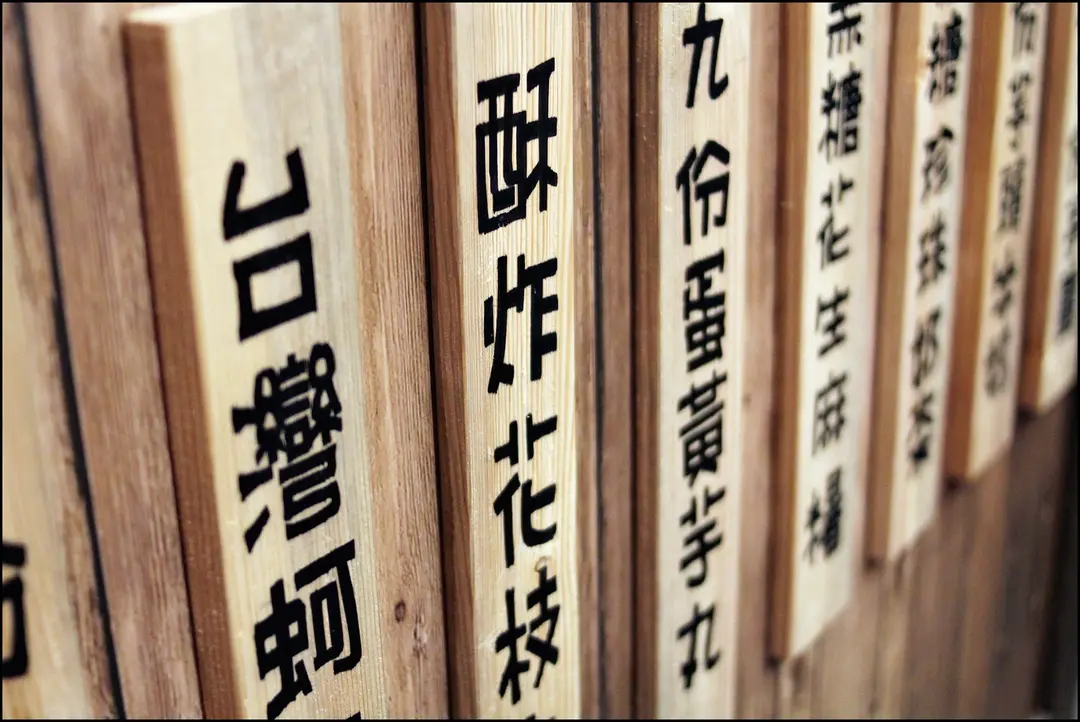 台灣蚵
酥炸花枝
九份蛋黃芋丸
糖花生麻糬
糖珍珠奶茶